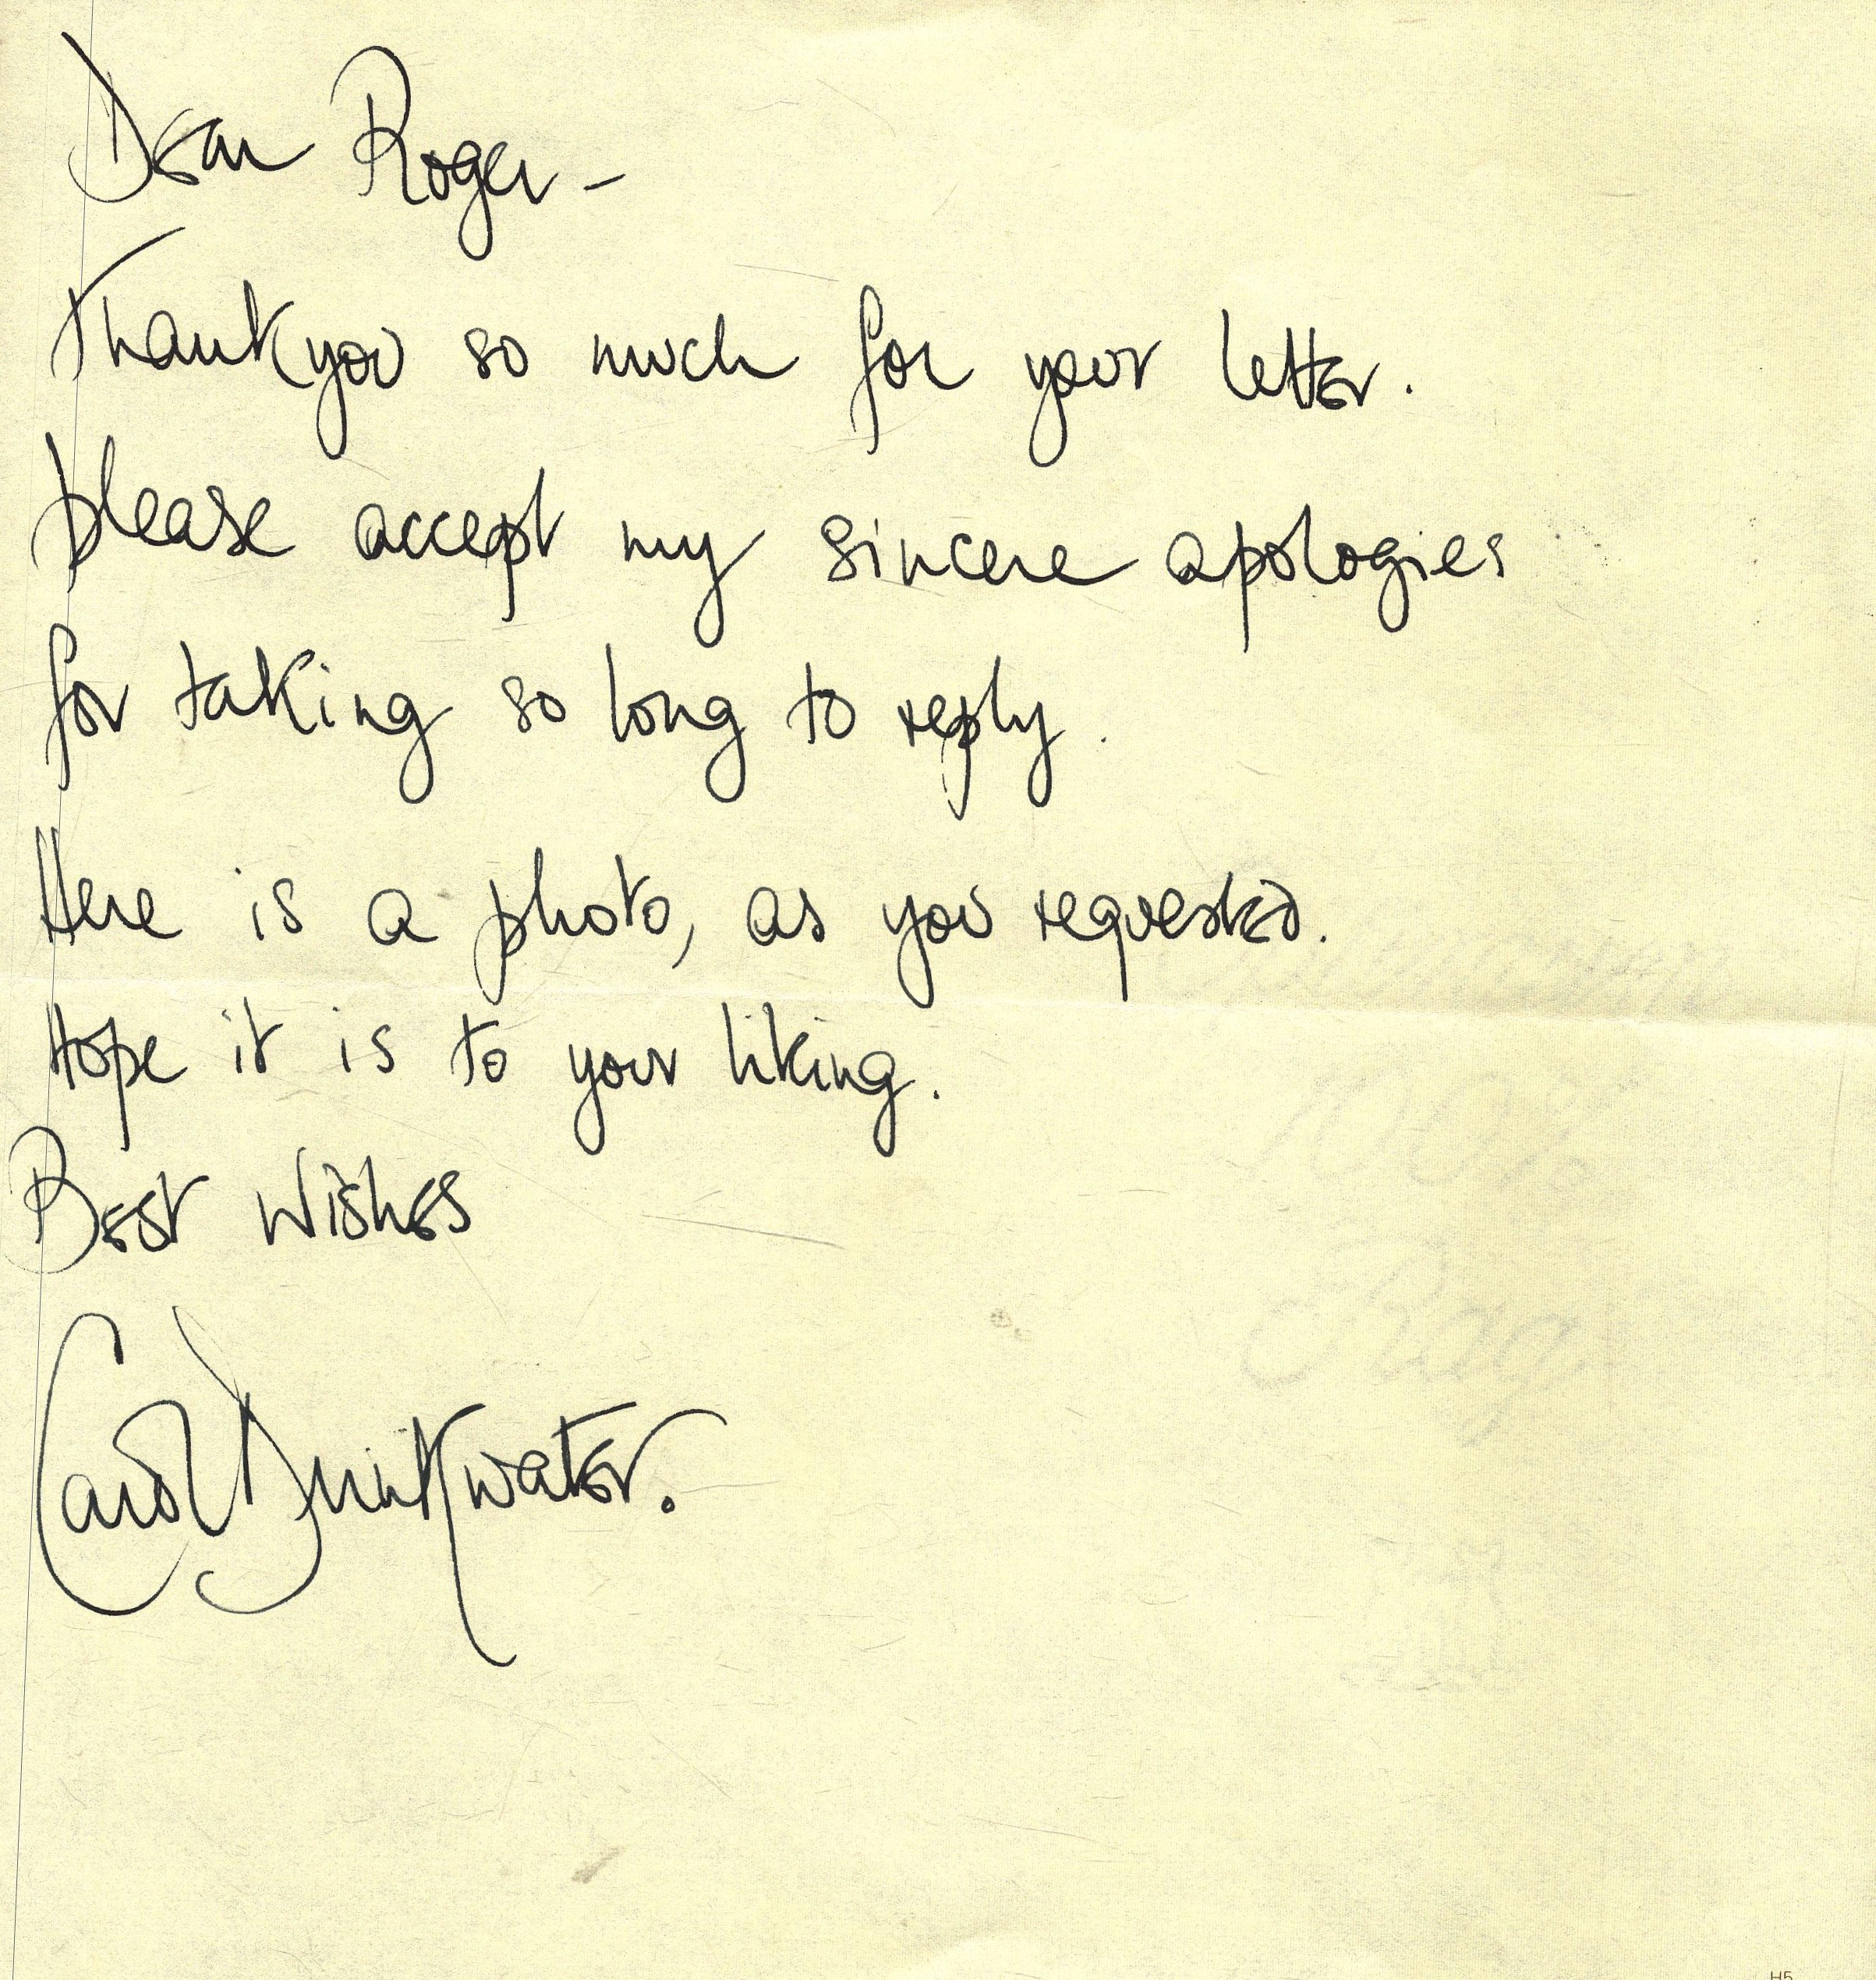 Dear Roger -
Thankyou so much for your letter.
please accept my sincere apologies
for taking so long to reply.
Here is a photo, as you requested.
Hope it is to your liking.
Best Wishes
Carol Drinkwater.
H5